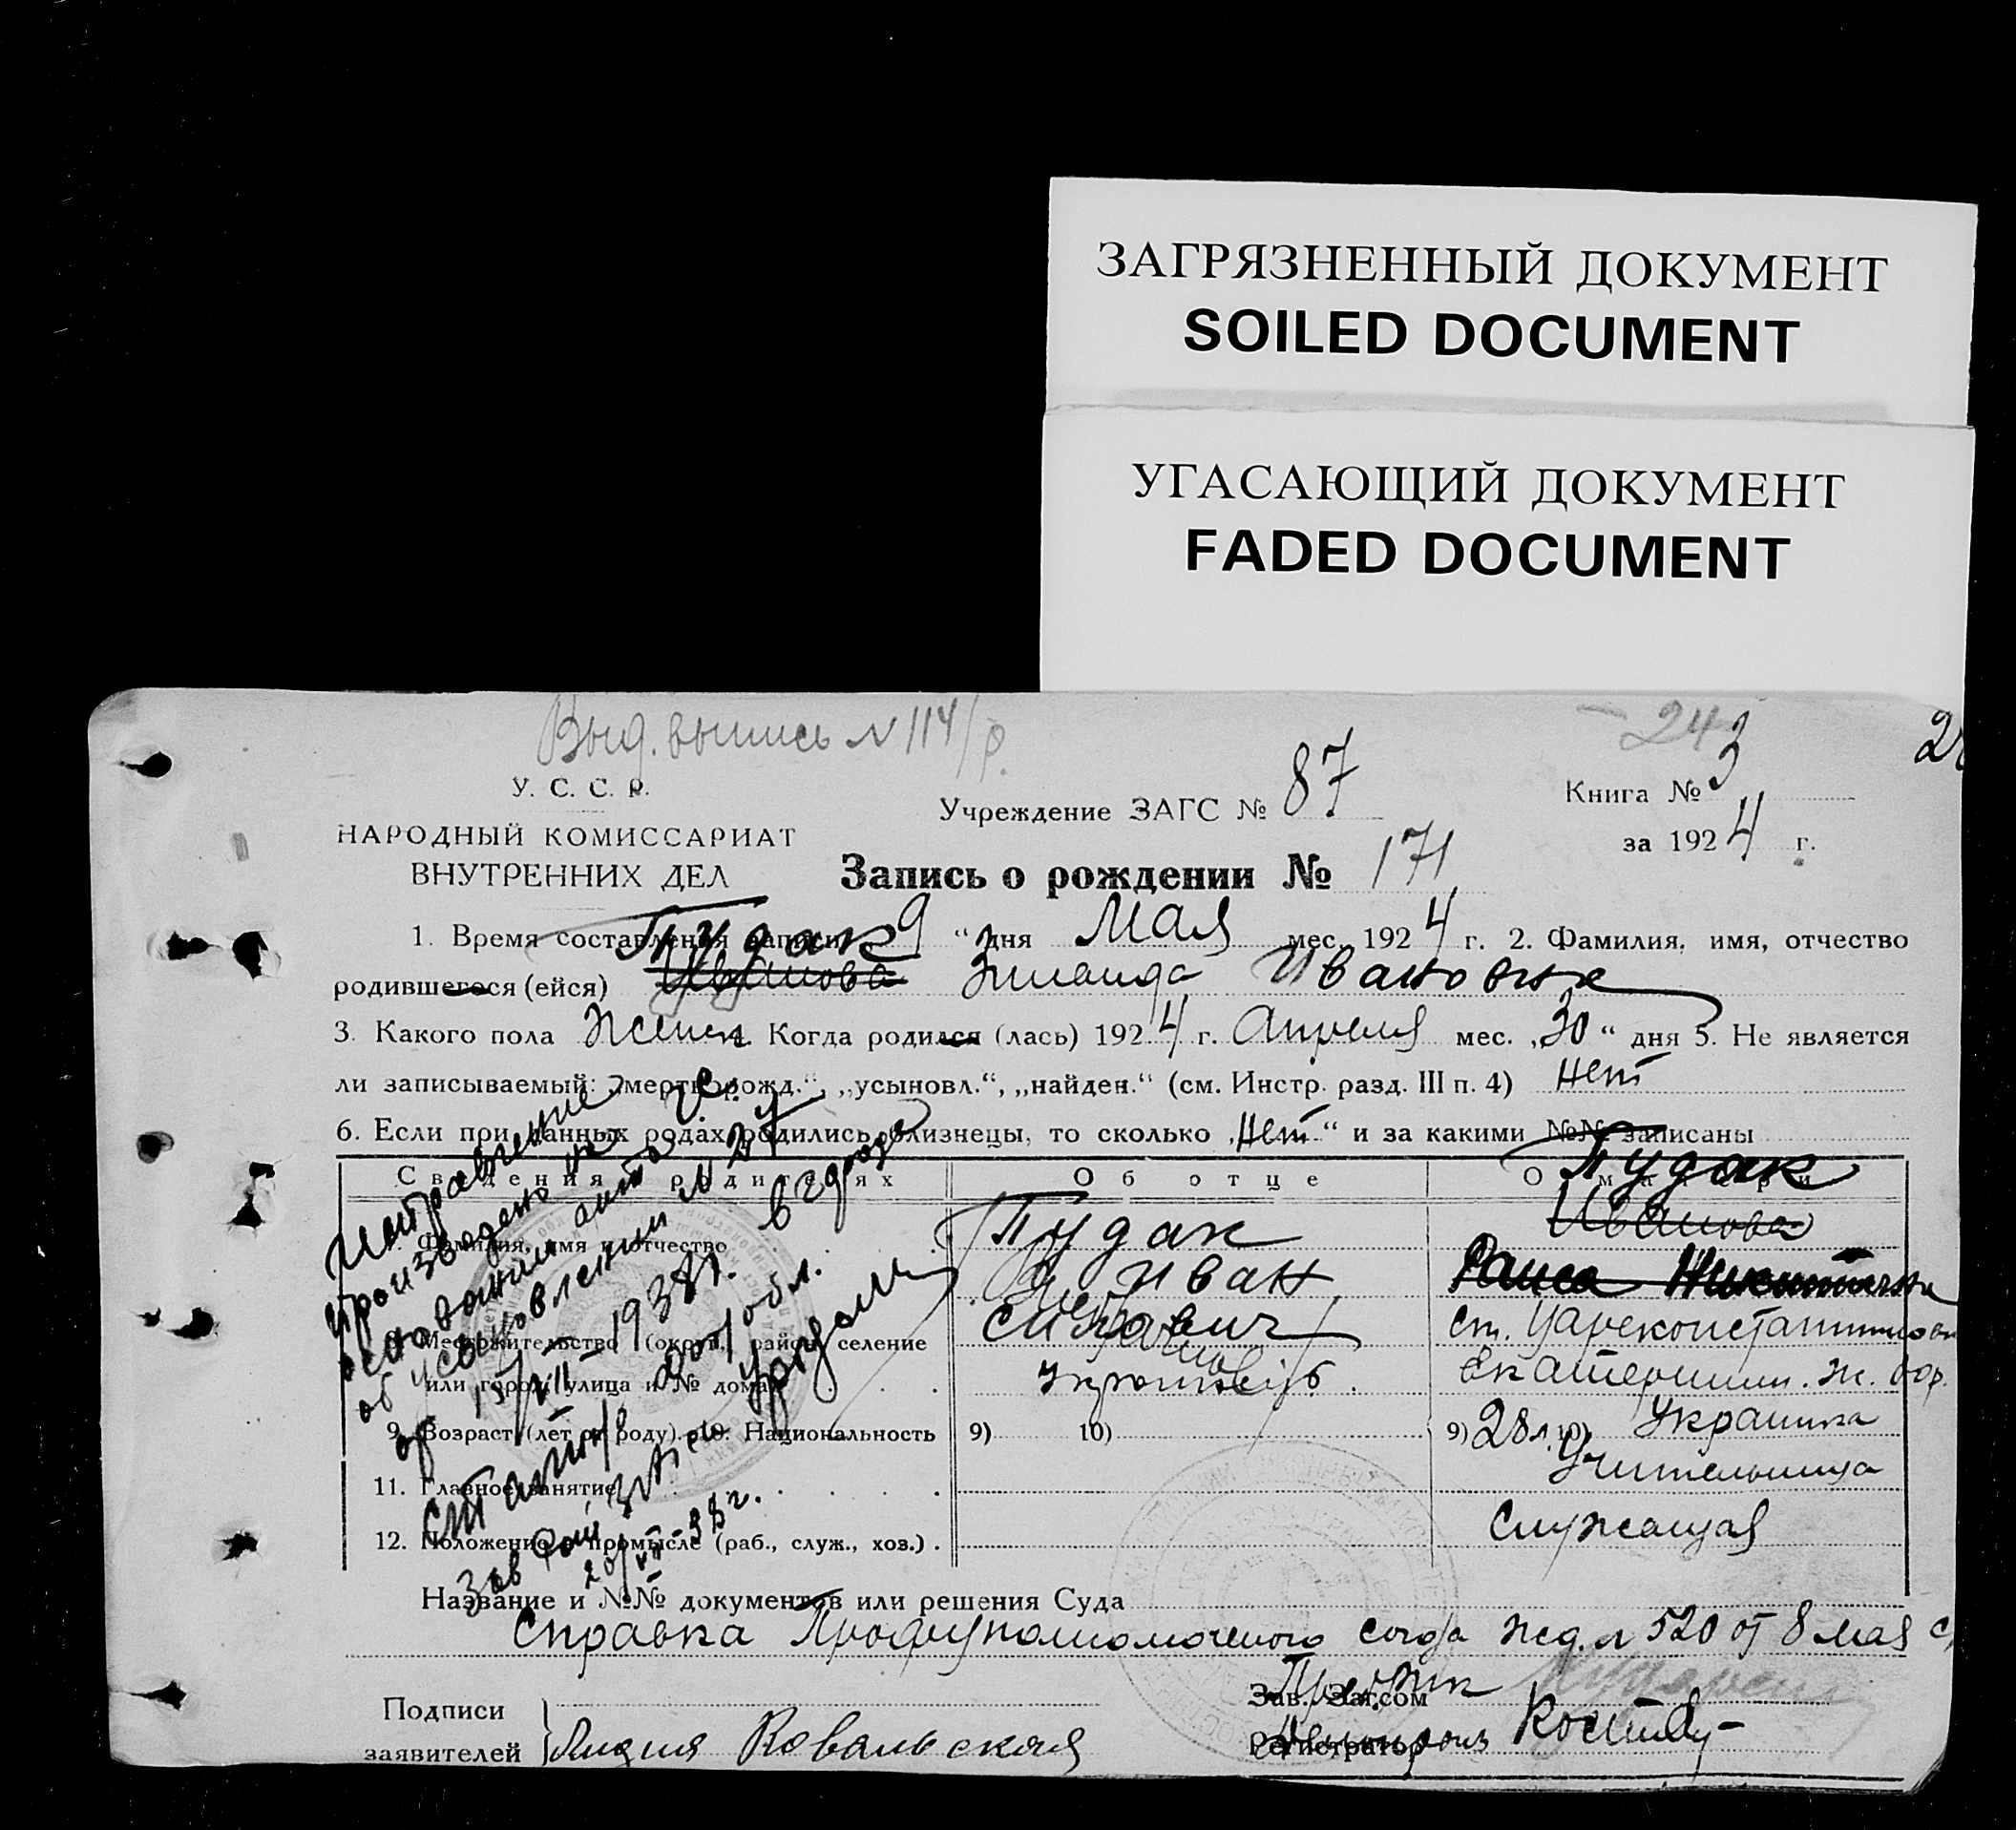 ЗАГРЯЗНЕННЫЙ ДОКУМЕНТ
SOILED DOCUMENT
УГАСАЮЩИЙ ДОКУМЕНТ
FADED DOCUMENT
Выд. выпись N 114/р.
24
У. С. С. Р.
НАРОДНЫЙ КОМИССАРИАТ
ВНУТРЕННИХ ДЕЛ
Учреждение ЗАГС № 87
Книга № 3
за 1924 г.
Запись о рождении № 171
1. Время составления записи 9 “ дня Мая мес. 1924 г. 2. Фамилия, имя, отчество
Пудак
родившегося (ейся) Иванова Зинаида Ивановна
3. Какого пола Женск. Когда родился (лась) 1924 г. Апреля мес. „30“ дня 5. Не является
ли записываемый: „мертворожд.“, „усыновл.“, „найден.“ (см. Инстр. разд. III п. 4) нет
6. Если при данных родах родились близнецы, то сколько „нет“ и за какими №№ записаны
Сведения о родителях
Об отце
О матери
Фамилия, имя и отчество
Пудак
Иван
Пудак
Иванова
Раиса Никитична
8. Местожительство (округ, район, селение
или город, улица и № дома)
ст. Цареконстантиновка
Екатеринин. ж. дор.
9. Возраст (лет от роду). 10. Национальность
9) 10)
9) 28 л. 10) Украинка
11. Главное занятие
Учительница
12. Положение в промысле (раб., служ., хоз.)
Служащая
Исправление
произведено на
основании акта
об усыновлении N 27
от 1938 г. в городе
обл.
Зав
38 г.
Название и №№ документов или решения Суда
Справка Профуполномоченого союза жд. N 520 от 8 мая с
Подписи
заявителей
Лидия Ковальская
Зав. Загсом
Регистратор